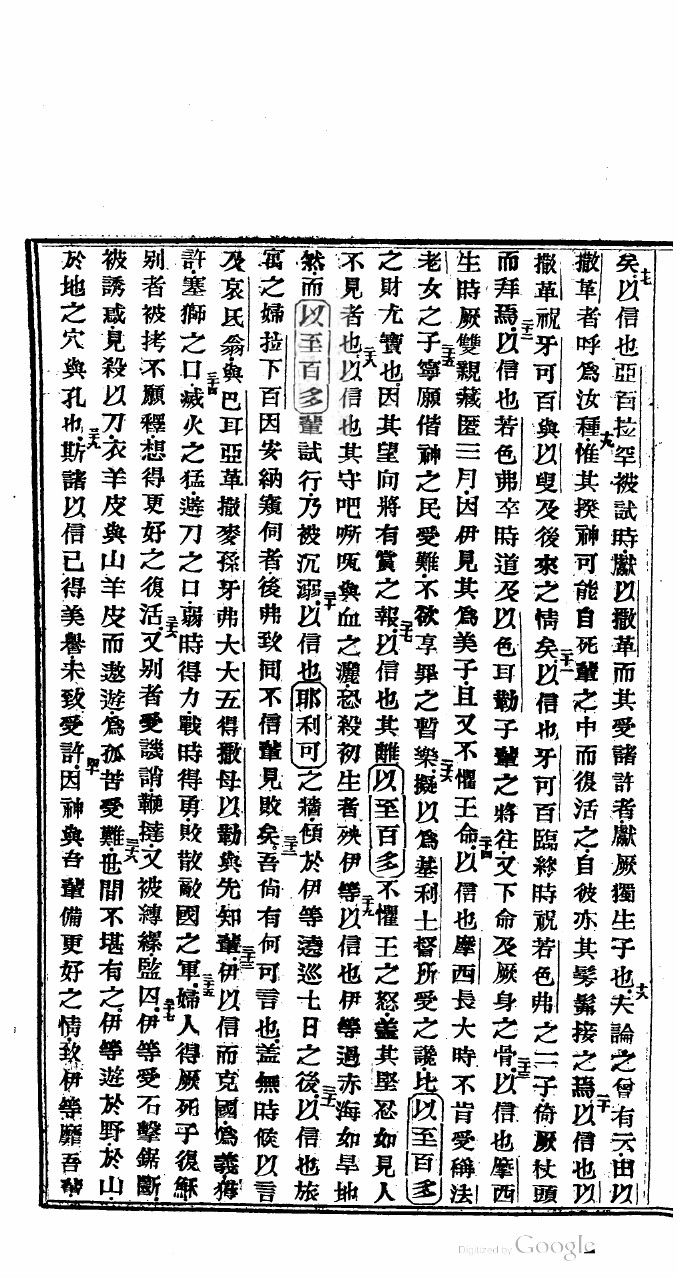 矣以信也亞百拉罕被試時獻以撒革而其受諸許者獻厥獨生子也夫論之曾有云由以
撒革者呼爲汝種惟其揆神可能自死輩之中而復活之自彼亦其髣髴接之焉以信也以
撒革祝牙可百與以叟及後來之情矣以信也牙可百臨終時祝若色弗之二子倚厥杖頭
而拜焉以信也若色弗卒時道及以色耳勒子輩之將往又下命及厥身之骨以信也摩西
生時厥雙親藏匿三月因伊見其爲美子且又不懼王命以信也摩西長大時不肯受稱法
老女之子寧願偕神之民受難不欲享罪之暫樂擬以爲基利士督所受之謗比以至百多
之財尤寶也因其望向將有賞之報以信也其離以至百多不懼王之怒蓋其堅忍如見人
不見者也以信也其守吧嘶㕵與血之灑恐殺初生者殃伊等以信也伊等過赤海如旱地
然而以至百多輩試行乃被沉溺以信也耶利可之牆傾於伊等遶巡七日之後以信也旅
寓之婦拉下百因安納窺伺者後弗致同不信輩見敗矣吾尙有何可言也蓋無時候以言
及哀氐翁與巴耳亞革撒麥孫牙弗大大五得撒母以勒與先知輩伊以信而克國爲義獲
許塞獅之口滅火之猛遊刀之口弱時得力戰時得勇敗散敵國之軍婦人得厥死子復穌
别者被拷不願釋想得更好之復活又别者受譏誚鞭撻又被縛縲監囚伊等受石擊鋸斷
被誘惑見殺以刀衣羊皮與山羊皮而遨遊爲孤苦受難世間不堪有之伊等遊於野於山
於地之穴與孔也斯諸以信已得美譽未致受許因神與吾輩備更好之情致伊等靡吾輩
Digitized by Google